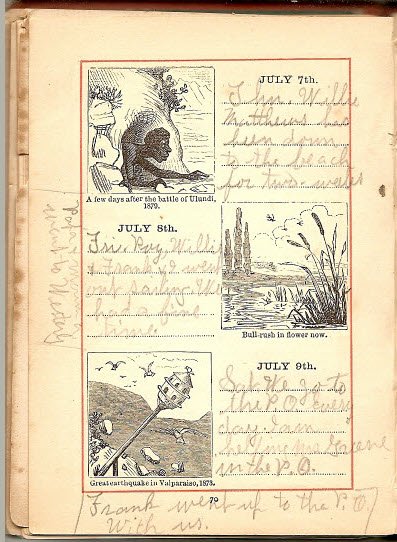 JULY 7th.
Thu. Willie
Matthews has
been down
to the beach
for two weeks
A few days after the battle of Ulundi,
1879.
JULY 8th.
Fri. Roy, Willie
& Frank & went
out sailing. We
had a fine
time.
Bull-rush in flower now.
JULY 9th.
Sat. We go to
the P.O. every
day.
in the P.O.
Great earthquake in Valparaiso, 1873.
79
Frank went up to the P.O.
With us.
Papa
went to